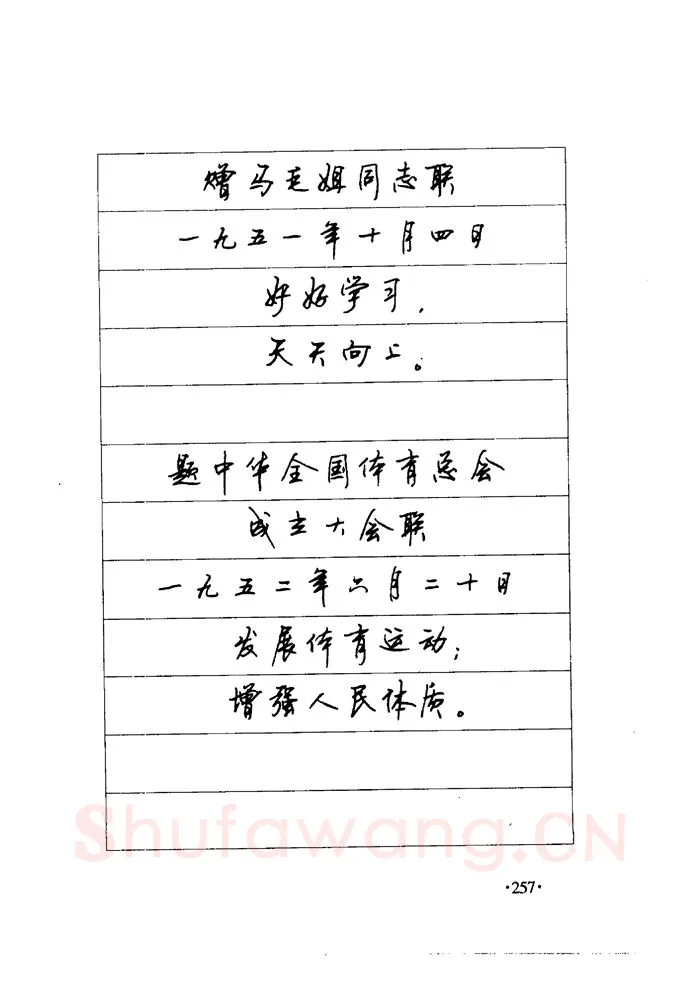 赠马毛姐同志联
一九五一年十月四日
好好学习，
天天向上。
题中华全国体育总会
成立大会联
一九五二年六月二十日
发展体育运动；
增强人民体质。
Shufawang.CN
·257·